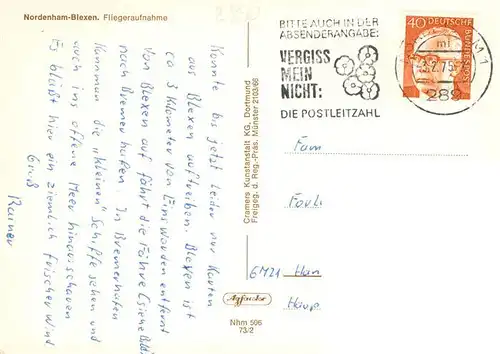 Nordenham-Blexen. Fliegeraufnahme
Konnte bis jetzt leider nur Karten
aus Blexen auftreiben. Blexen ist
ca 3 Kilometer von Einswarden entfernt
Von Blexen aus fährt die Fähre (siehe Bild)
nach Bremerhafen. In Bremerhafen
kann man die "kleinen" Schiffe sehen und
auch ins offene Meer hinausschauen
Es bläßt hier ein ziemlich frischer Wind
Gruß
Rainer
Cramers Kunstanstalt KG, Dortmund
Freigeg. d. Reg.-Präs. Münster 2103/66
Agfacolor
Nhm 596
73/2
BITTE AUCH IN DER
ABSENDERANGABE:
VERGISS
MEIN
NICHT:
DIE POSTLEITZAHL
40
DEUTSCHE
BUNDESPOST
ml
-3.7.75
289
1
Fam
6121
Haup